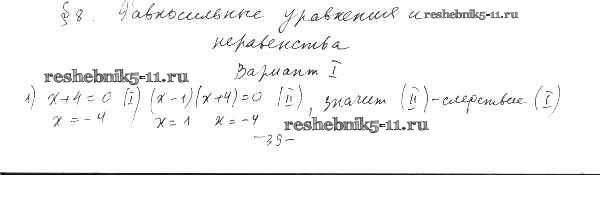 § 8. Равносильные уравнения и reshebnik5-11.ru
неравенства
Вариант I
reshebnik5-11.ru
1) x+4=0 (I) (x-1)(x+4)=0 (II), значит (II)-следствие (I)
x=-4 x=1 x=-4 reshebnik5-11.ru
-39-